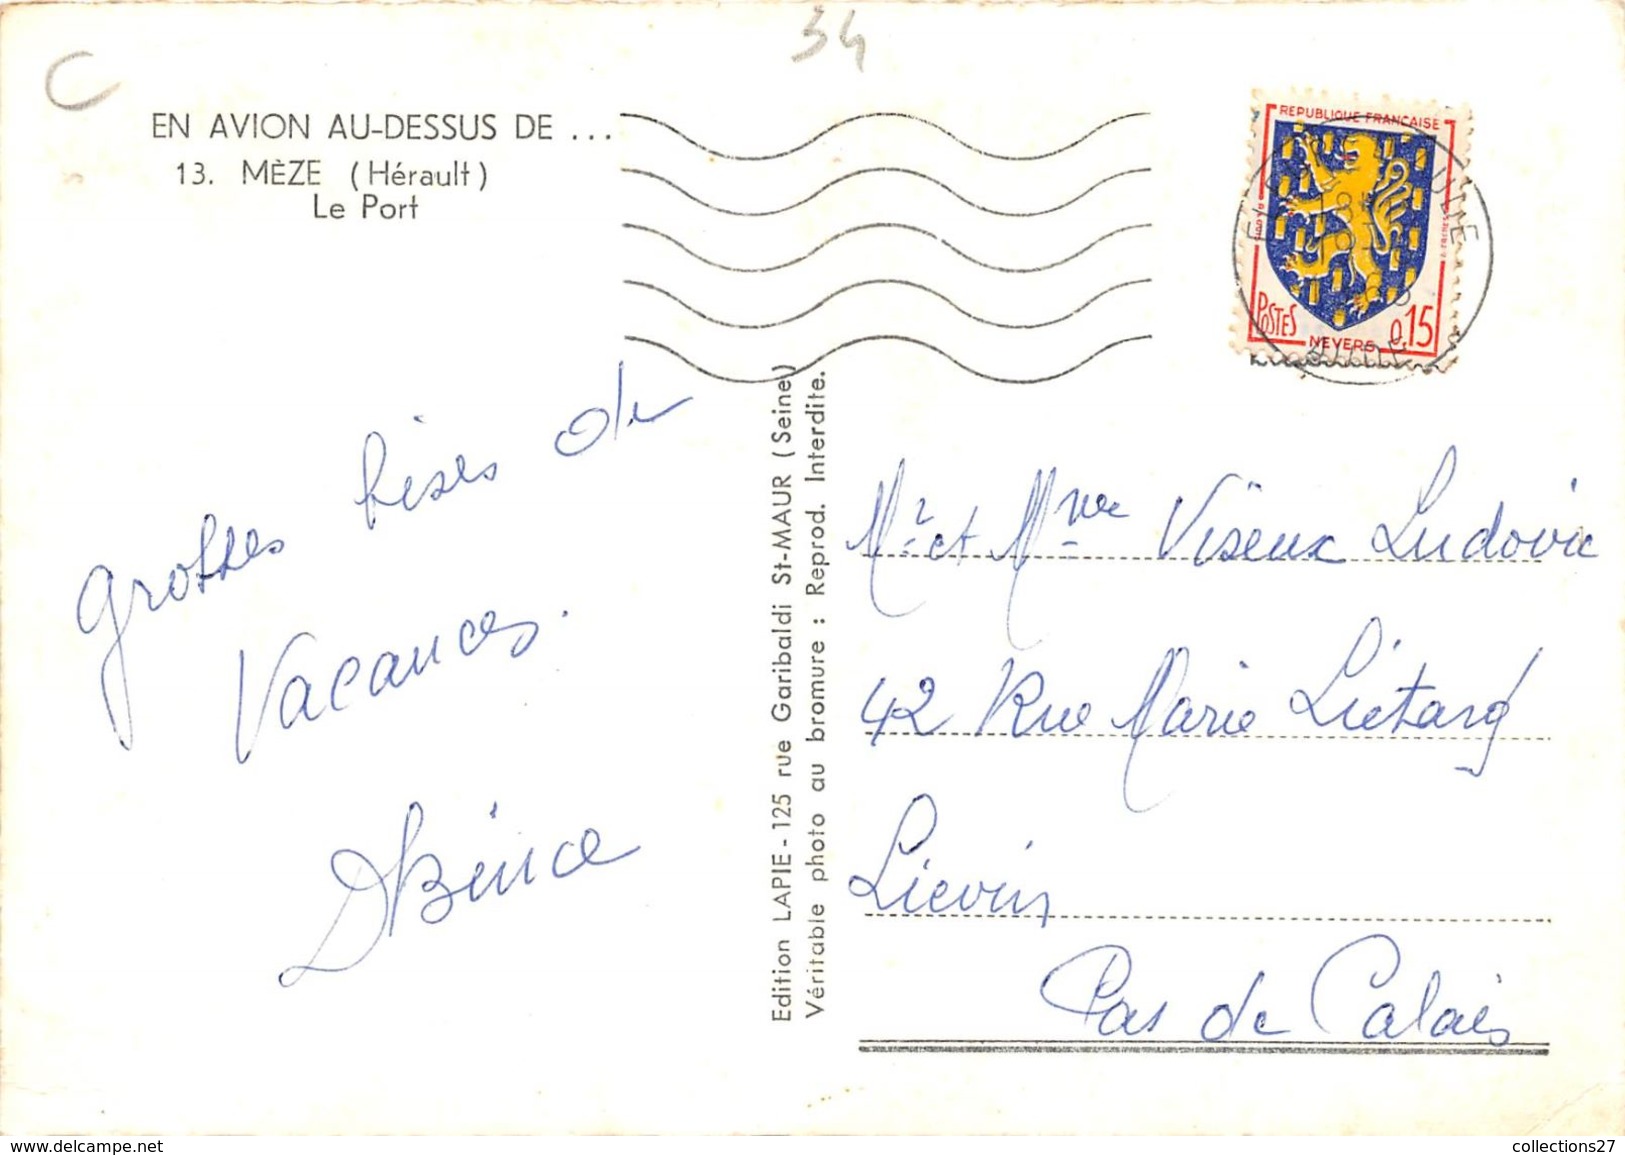 34
C
EN AVION AU-DESSUS DE ...
13. MÈZE (Hérault)
Le Port
REPUBLIQUE FRANCAISE
POSTES
0,15
NEVERS
Grosses bises de
Vacances.
Edition LAPIE - 125 rue Garibaldi St-MAUR (Seine)
Véritable photo au bromure : Reprod. Interdite.
Mr et Mme Viseux Ludovic
42 Rue Marie Liétard
Lievin
Pas de Calais
www.delcampe.net
collections27